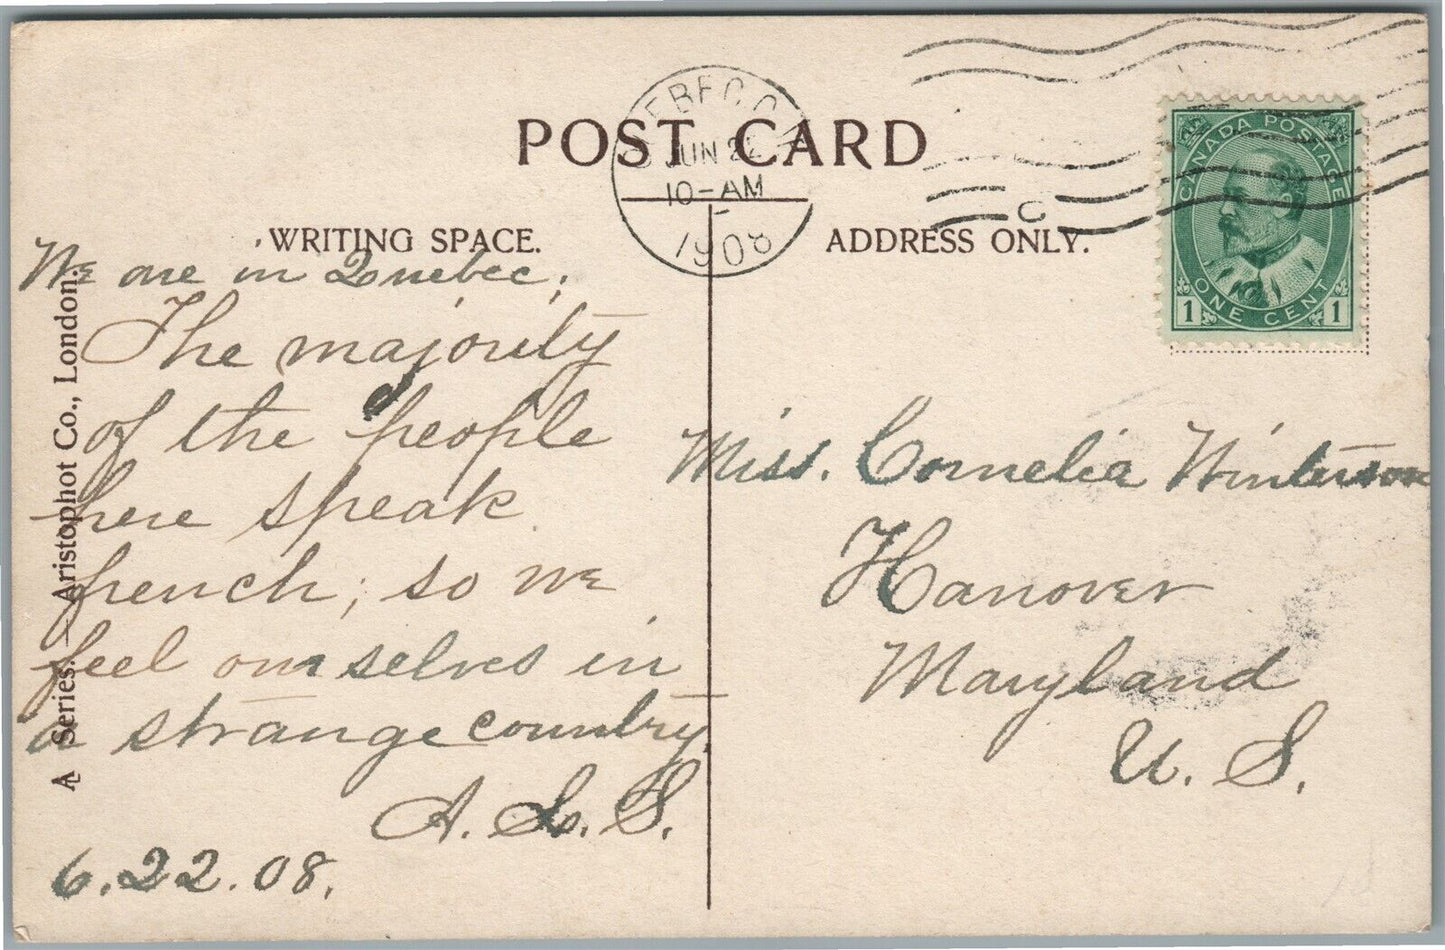 POST CARD
WRITING SPACE.
ADDRESS ONLY.
JUN 22
10-AM
1908
CANADA POSTAGE
1 ONE CENT 1
We are in Quebec;
The majority
of the people
here speak
french; so we
feel ourselves in
a strange country.
A. L. S.
6.22.08.
Miss. Cornelia Winterson
Hanover
Maryland
U. S.
A Series. — Aristophot Co., London.